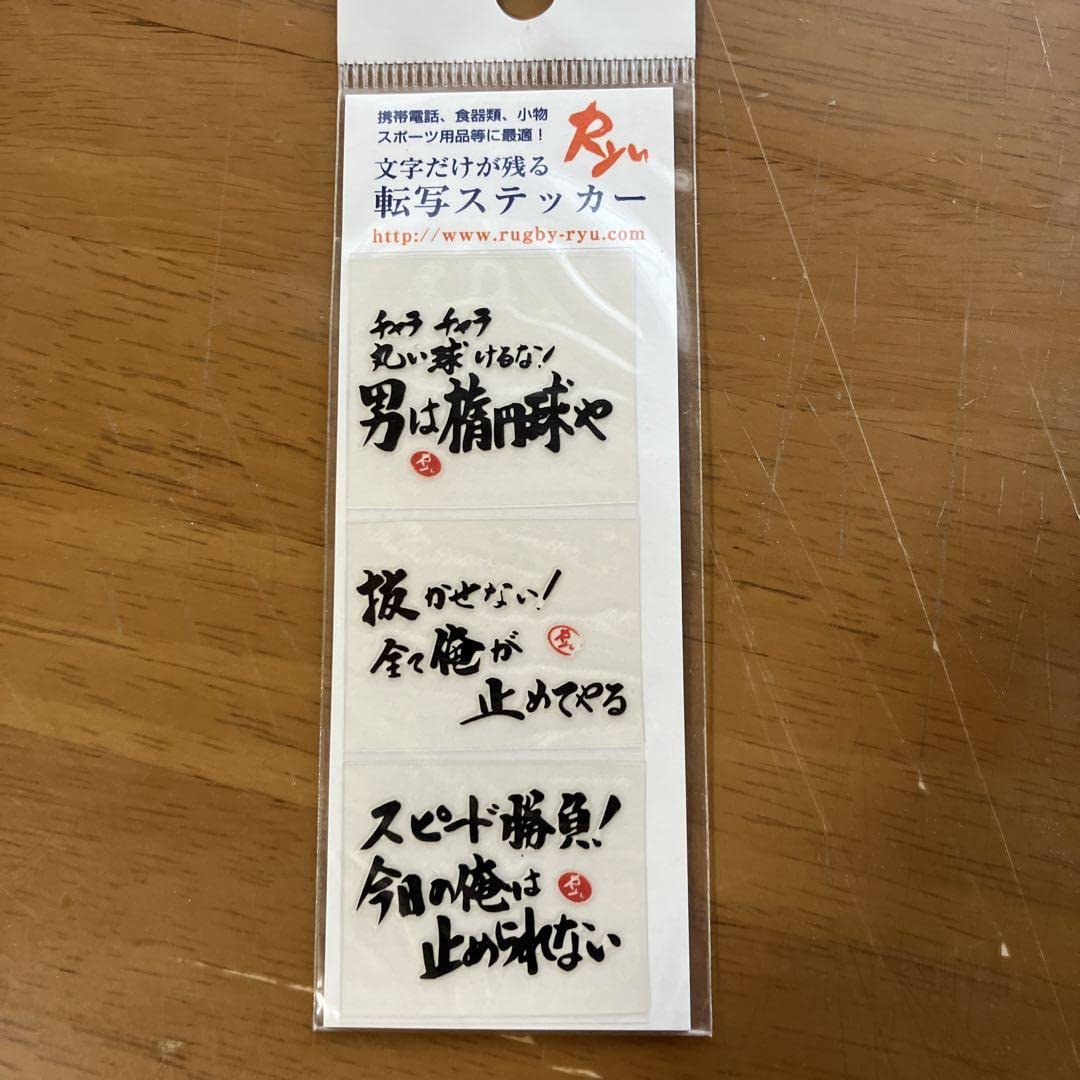 携帯電話、食器類、小物
スポーツ用品等に最適！
Ryu
文字だけが残る
転写ステッカー
http://www.rugby-ryu.com
チャラ チャラ
丸い球 けるな！
男は楕円球や
Ryu
抜かせない！
全て俺が
Ryu
止めてやる
スピード勝負！
今日の俺は
Ryu
止められない